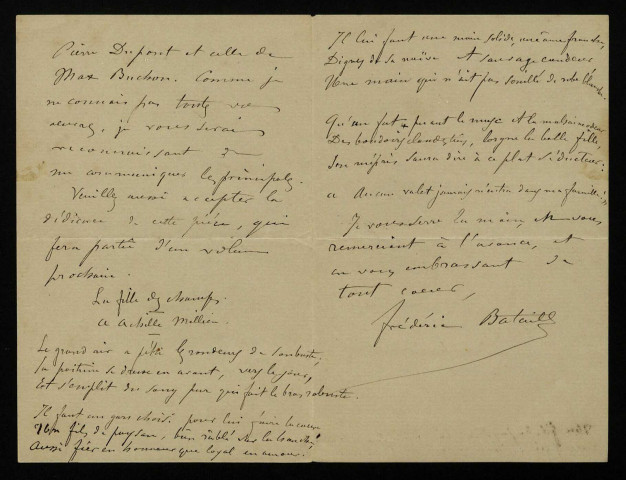 Pierre Dupont et celle de
Max Buchon. Comme je
ne connais pas toutes vos
œuvres, je vous serai
reconnaissant de
me communiquer les principales.
Veuillez aussi accepter la
dédicace de cette pièce, qui
fera partie d'un volume
prochain.
La fille des champs.
A Achille Millien.
Le grand air a pétri les rondeurs de son buste;
Sa poitrine se dresse en avant, vers le jour,
Et s'emplit du sang pur qui fait le bras robuste.
Il faut un gars choisi pour lui faire la cour
Un fils de paysan, bien râblé sur la hanche,
Aussi fier en honneur que loyal en amour.
Il lui faut une main solide, une âme franche,
Dignes de sa naïve et sauvage candeur
Une main qui n'ait pas souillé de robe blanche.
Qu'un fat puant le musc et la malsaine odeur
Des boudoirs clandestins, lorgne la belle fille,
Son mépris saura dire à ce plat séducteur:
« Aucun valet jamais n'entra dans ma famille! »
Je vous serre la main, en vous
remerciant à l'avance, et
en vous embrassant de
tout cœur,
Frédéric Bataille